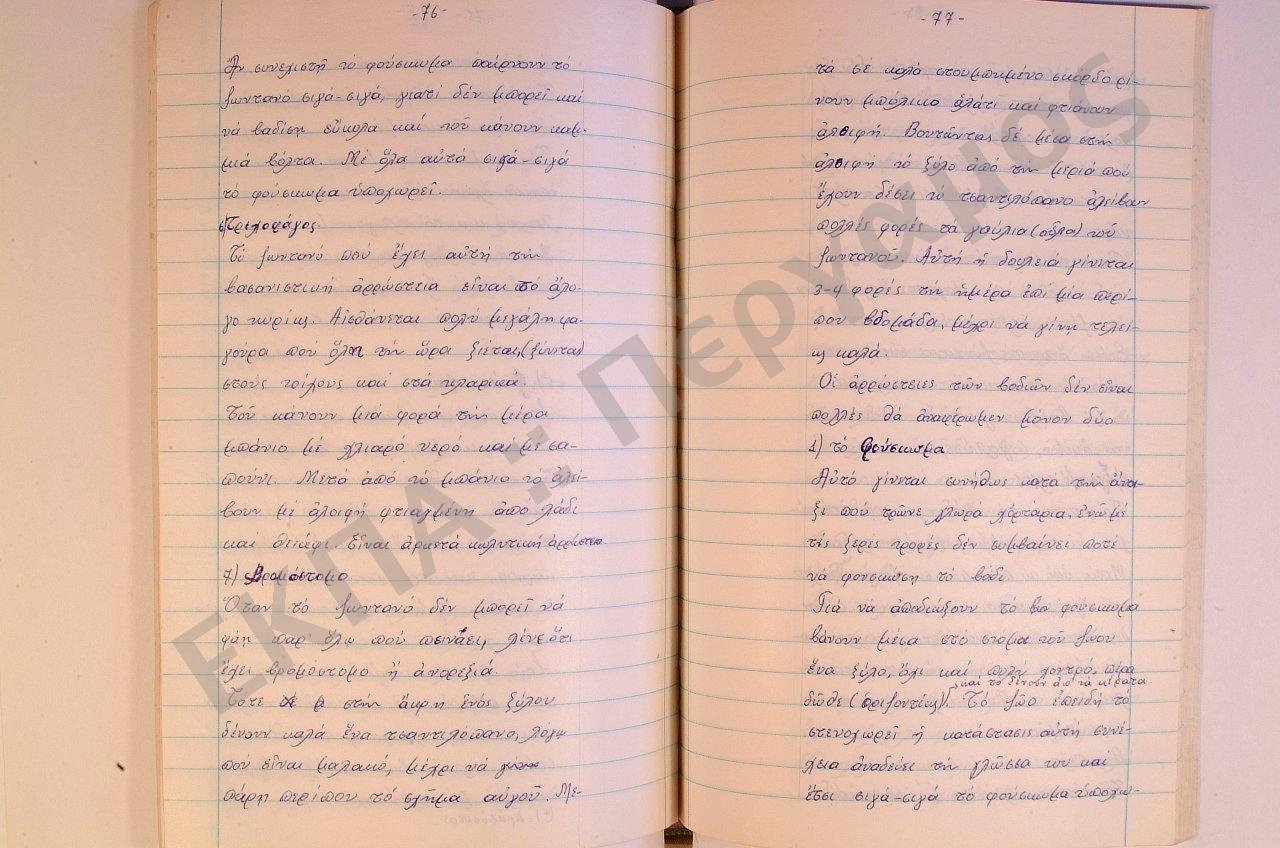 -76-
Ἂν συνεχιστῆ τό φούσκωμα παίρνουν τό
ζωντανό σιγά-σιγά, γιατί δέν μπορεῖ καί
νά βαδίση εὔκολα καί τοῦ κάνουν καμ-
μιά βόλτα. Μέ ὅλα αὐτά σιγά-σιγά
τό φούσκωμα ὑποχωρεῖ.
6) Τριχοφάγος.
Τό ζωντανό πού ἔχει αὐτή τήν
βασανιστική ἀρρώστεια εἶναι τό ἄλο-
γο κυρίως. Αἰσθάνεται πολύ μεγάλη φα-
γούρα πού ὅλη τήν ὥρα ξιέται, (ξύνεται)
στούς τοίχους καί στά κλαρικά.
Τοῦ κάνουν μιά φορά τήν μέρα
μπάνιο μέ χλιαρό νερό καί με σα-
πούνι. Μετά ἀπό τό μπάνιο τό ἀλεί-
βουν μέ ἀλοιφή φτιαγμένη ἀπό λάδι
καί θειάφι. Εἶναι ἀρκετά κολυτική ἀρρώστεια.
7) Βρομόστομο.
Ὅταν τό ζωντανό δέν μπορεῖ νά
φάη παρ' ὅλο πού πεινάει, λένε ὅτι
ἔχει βρομόστομο ἤ ἀνορεξιά.
Τότε στήν ἄκρη ἑνός ξύλου
δένουν καλά ἕνα τσαντιλόπανο, λόγω
πού εἶναι μαλακό, μέχρι νά
πάρη περίπου τό σχῆμα αὐγοῦ. Με-
-77-
τά σέ καλά στουμπημένο σκόρδο ρί-
χνουν μπόλικο ἁλάτι καί φτιάνουν
ἀλοιφή. Βουτώντας δέ μέσα στήν
ἀλοιφή τό ξύλο ἀπό τήν μεριά πού
ἔχουν δέσει τό τσαντιλόπανο ἀλείβουν
πολλές φορές τά γαύλια (οὖλα) τοῦ
ζωντανοῦ. Αὐτή ἡ δουλειά γίνεται
3-4 φορές τήν ἡμέρα ἐπί μία περί-
που βδομάδα, μέχρι νά γίνη τελεί-
ως καλά.
Οἱ ἀρρώστειες τῶν βοδιῶν δέν εἶναι
πολλές θά ἀναφέρωμεν μόνον δύο
1) τό φούσκωμα
Αὐτό γίνεται συνήθως κατά τήν ἄνοι-
ξι πού τρῶνε χλωρά χόρταρια, ἐνῶ μέ
τίς ξερες τροφές δέν συμβαίνει ποτέ
νά φουσκώση τό βόδι
Γιά νά ἀποδιώξουν τό φούσκωμα
βάνουν μέσα στό στόμα τοῦ ζώου
ἕνα ξύλο, ὄχι καί πολύ χοντρό, πέρα
καί τό δένουν ἀπ' τά κέρατα.
δῶθε (ὁριζοντίως). Τό ζῶο ἐπειδή τό
στενοχωρεῖ ἡ κατάστασις αὐτή συνέ-
χεια ἀναδεύει τήν γλώσσα του καί
ἔτσι σιγά-σιγά τό φούσκωμα ὑποχω-
ΕΚΠΑ :: Πέργαμος